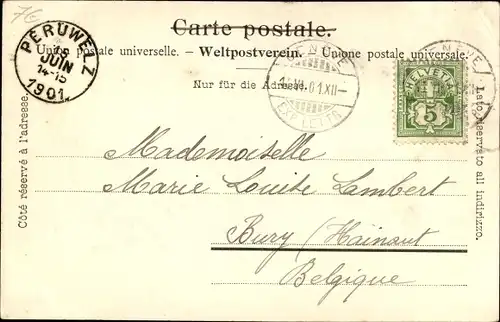 7€
Carte postale.
Union postale universelle. – Weltpostverein. – Unione postale universale.
Nur für die Adresse.
PERUWELZ
JUIN
14-15
1901
GENÈVE
EXP. LETTR
GENÈVE
HELVETIA
5
Côté réservé à l'adresse.
Lato riservato all indirizzo.
Mademoiselle
Marie Louise Lambert
Bury (Hainaut
Belgique